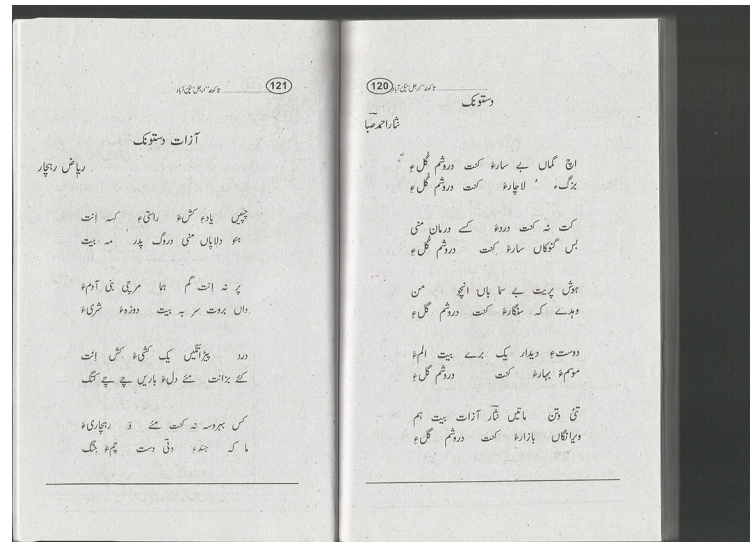 120
دستونک
نثار احمد صبا
اچ گماں بے سارءَ کنت دروشم گُلءِ
بزگءُ لاچارءَ کنت دروشم گُلءِ
کت نہ کنت دردءَ کسے درمان منی
بس گنوکاں سارءَ کنت دروشم گلءِ
ہوش پریت بے سما باں انچو من
وہدے کہ سنگارءَ کنت دروشم گلءِ
دوستءِ دیدار یک برے بیت المءَ
موسمءَ بہارءَ کنت دروشم گلءِ
تئی وتن ماتیں نثار آزات بیت ہم
ویرانگاں بازارءَ کنت دروشم گلءِ
121
آزات دستونک
ریاض رہچار
چپیں یادءِ کشءَ راستیءِ کسہ انت
دلاپاں منی دروگ پدر مہ بیت
پر نہ انت گم ہما مرچی بنی آدمءَ
داں بروت سر بہ بیت دوزہءَ شریءَ
درد پیڑانگیں یک کشیءَ کش انت
کئے بزانت مئے دلءَ باریں چے چے کنگ
کس بہروسہ نہ کنت مئے وَ رہچاریءَ
ما کہ جندءِ وتی دست چمءَ جنگ